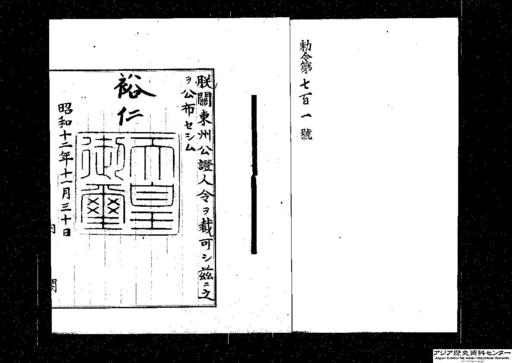 勅令第七百一號
朕關東州公證人令ヲ裁可シ茲ニ之
ヲ公布セシム
裕仁
天皇
御璽
昭和十二年十一月三十日
内閣
アジア歴史資料センター
Japan Center for Asian Historical Records